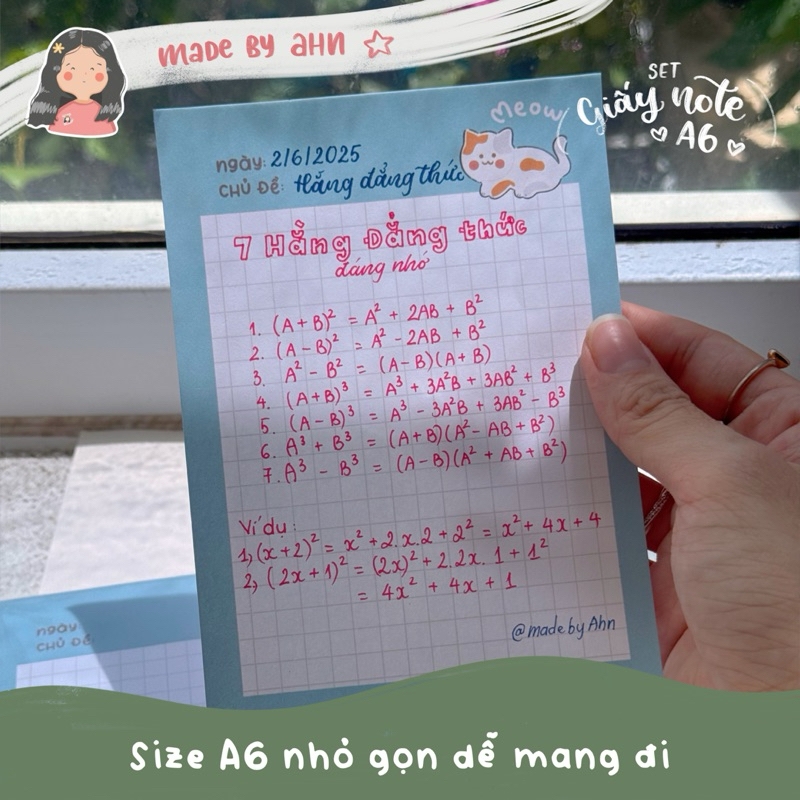 MADE BY AHN
SET
Giấy note
A6
Meow
ngày: 2/6/2025
CHỦ ĐỀ: Hằng đẳng thức
7 Hằng Đẳng thức
đáng nhớ
1. (A + B)² = A² + 2AB + B²
2. (A - B)² = A² - 2AB + B²
3. A² - B² = (A - B)(A + B)
4. (A + B)³ = A³ + 3A²B + 3AB² + B³
5. (A - B)³ = A³ - 3A²B + 3AB² - B³
6. A³ + B³ = (A + B)(A² - AB + B²)
7. A³ - B³ = (A - B)(A² + AB + B²)
Ví dụ:
1, (x + 2)² = x² + 2.x.2 + 2² = x² + 4x + 4
2, (2x + 1)² = (2x)² + 2.2x.1 + 1²
= 4x² + 4x + 1
@made by Ahn
ngày
CHỦ ĐỀ
Size A6 nhỏ gọn dễ mang đi